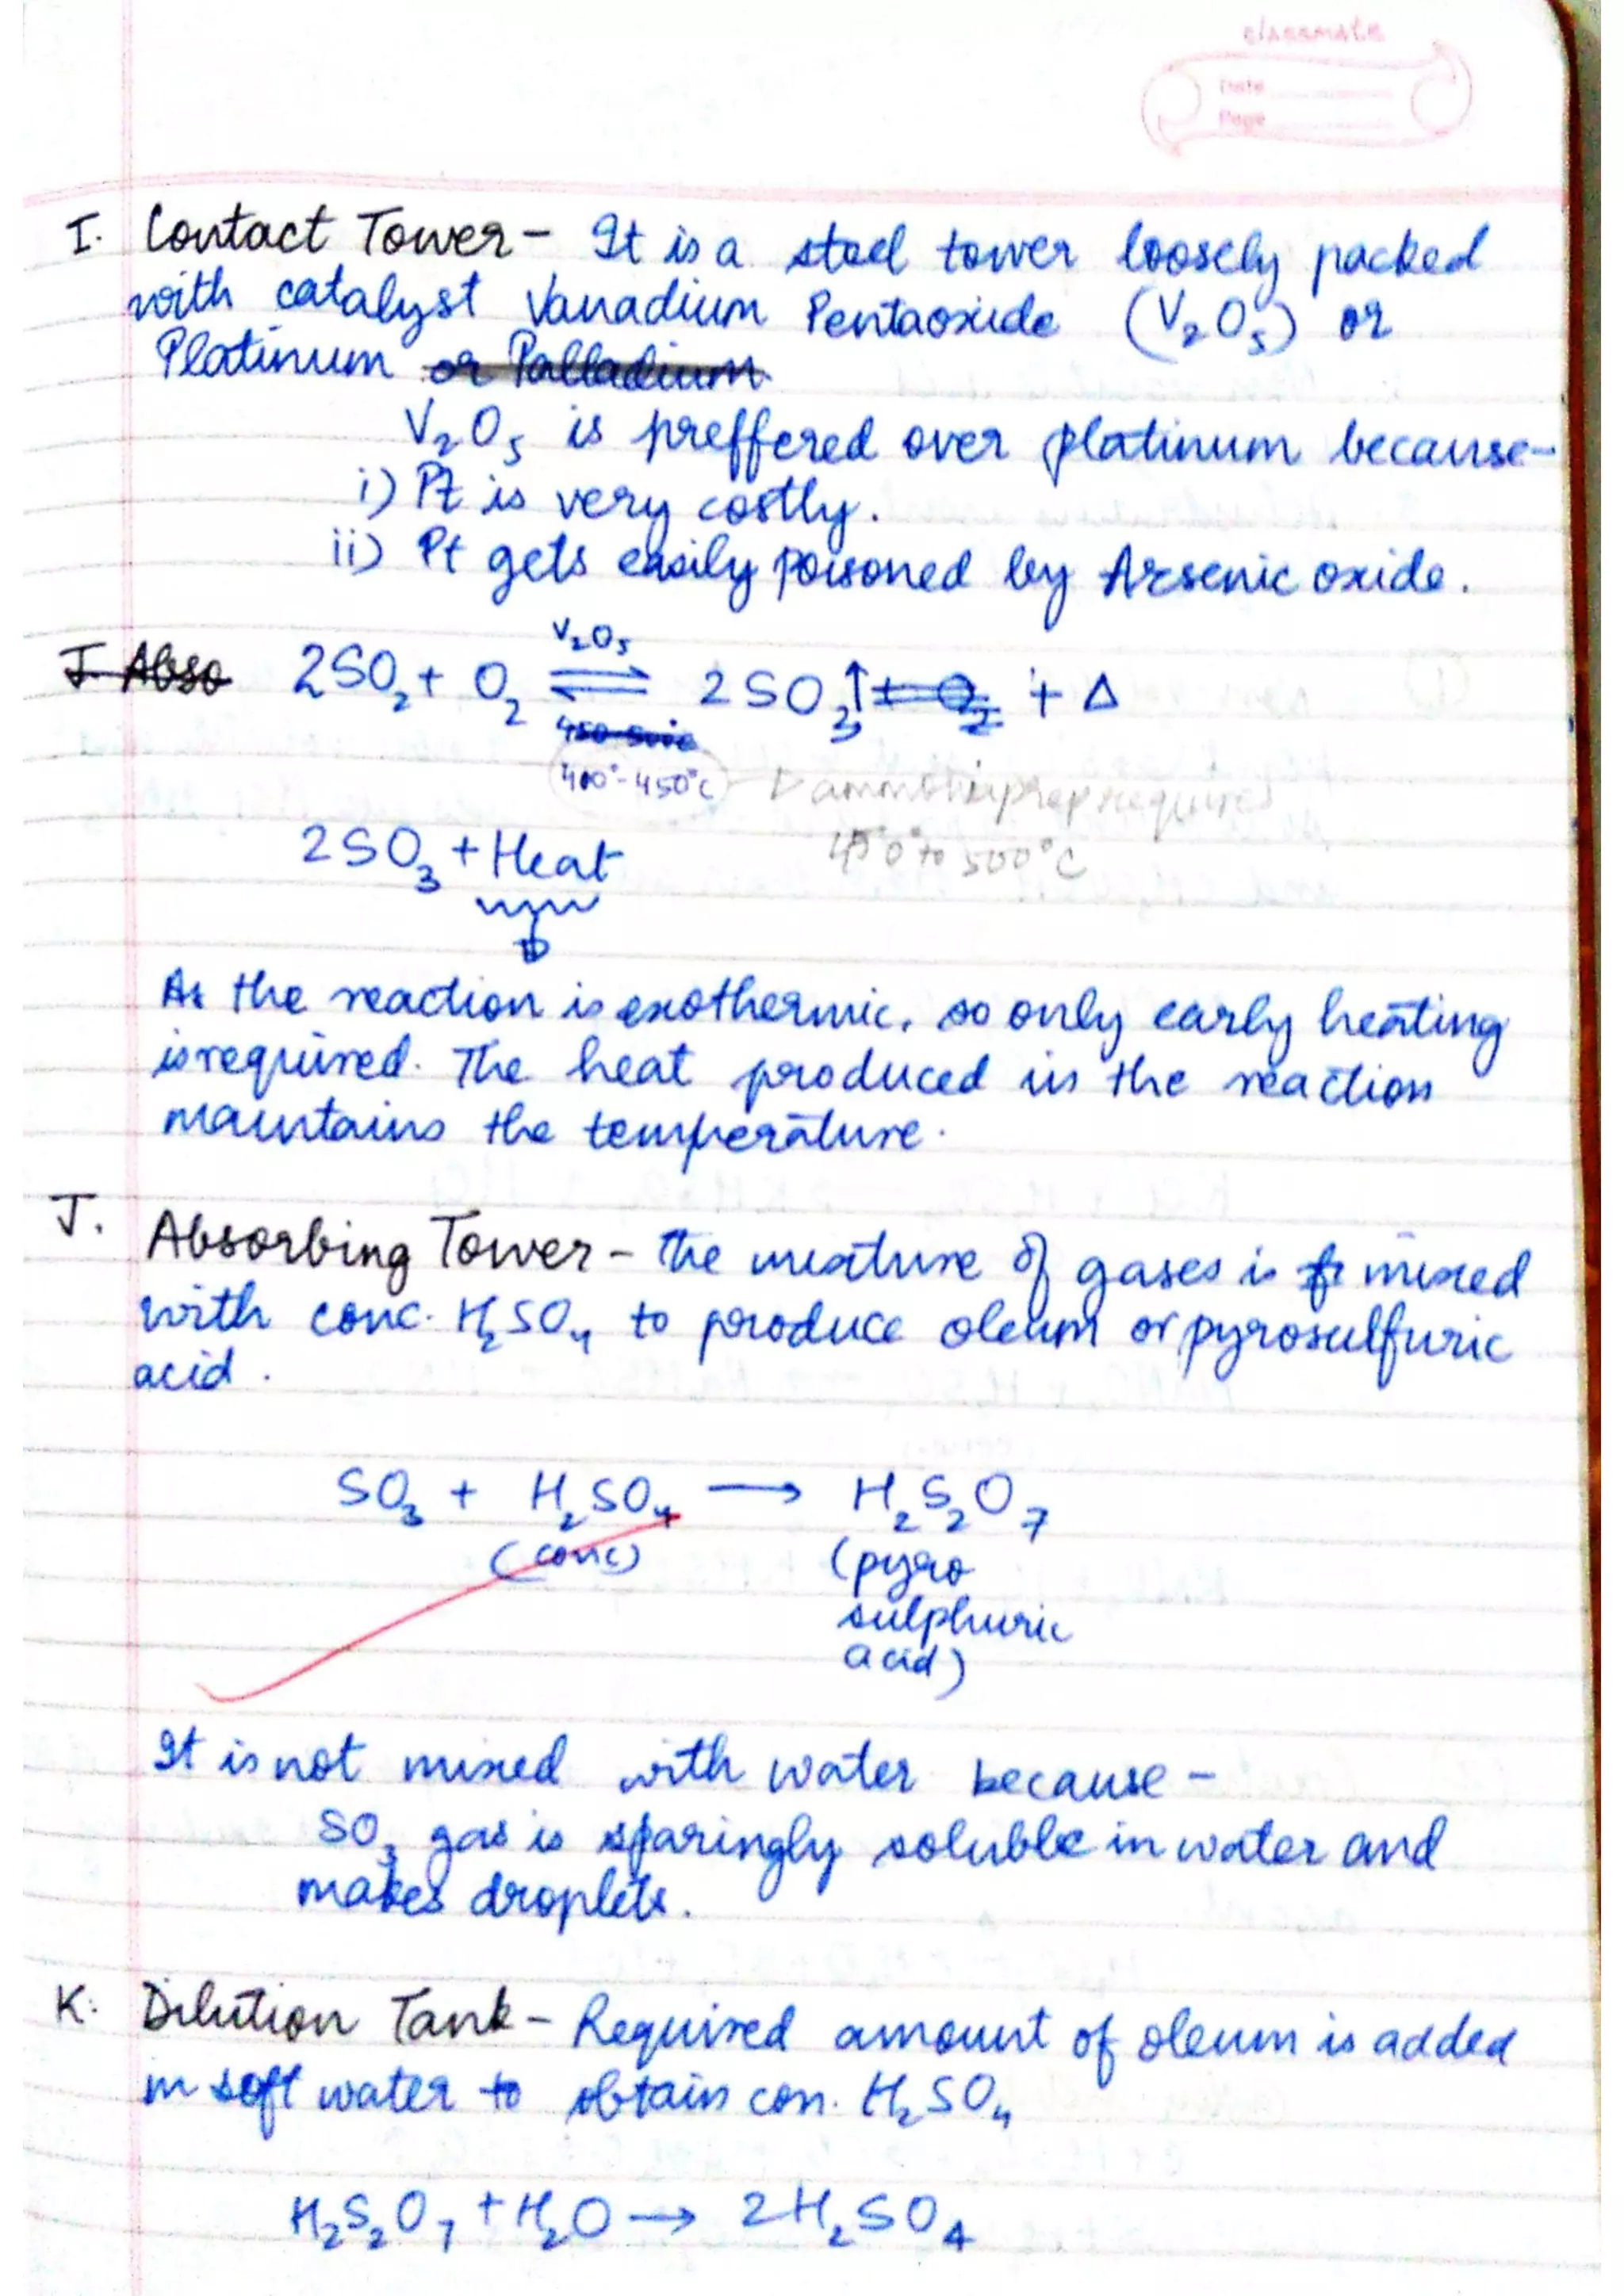 classmate
Date
Page
I. Contact Tower - It is a steel tower loosely packed
with catalyst Vanadium Pentaoxide (V₂O₅) or
Platinum or Palladium
V₂O₅ is preffered over platinum because-
i) Pt is very costly.
ii) Pt gets easily poisoned by Arsenic oxide.
V₂O₅
J. Abso 2SO₂ + O₂ ⇌ 2SO₃↑ + O₂ + Δ
400°-450°C
ammonia prep require
450° to 500°C
2SO₃ + Heat
As the reaction is exothermic, so only early heating
is required. The heat produced in the reaction
maintains the temperature.
J. Absorbing Tower - The mixture of gases is mixed
with conc. H₂SO₄ to produce oleum or pyrosulfuric
acid.
SO₃ + H₂SO₄ → H₂S₂O₇
(conc) (pyro
sulphuric
acid)
It is not mixed with water because -
SO₃ gas is sparingly soluble in water and
makes droplets.
K. Dilution Tank - Required amount of oleum is added
in soft water to obtain con. H₂SO₄
H₂S₂O₇ + H₂O → 2H₂SO₄